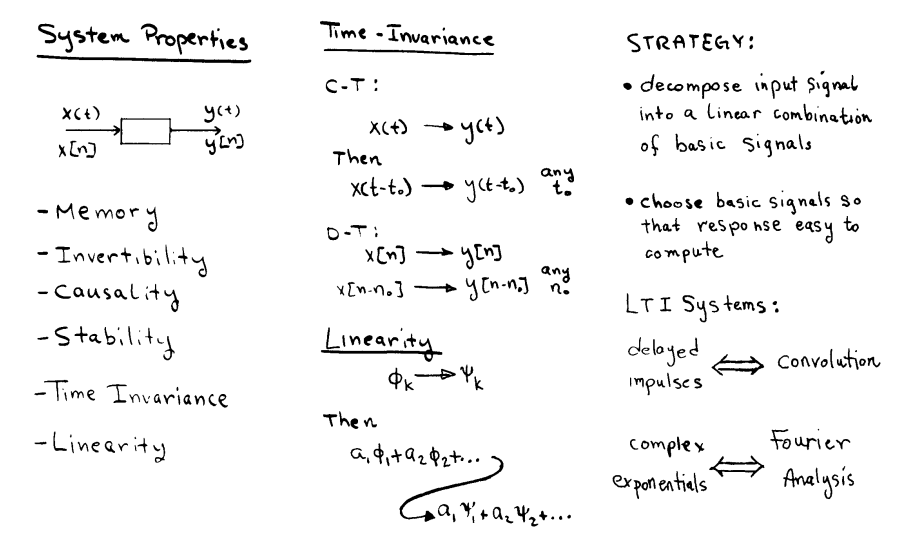 System Properties
x(t)
y(t)
x[n]
y[n]
- Memory
- Invertibility
- Causality
- Stability
- Time Invariance
- Linearity
Time - Invariance
C-T:
x(t) → y(t)
Then
x(t-t₀) → y(t-t₀) any t₀
D-T:
x[n] → y[n]
x[n-n₀] → y[n-n₀] any n₀
Linearity
ϕₖ → Ψₖ
Then
a₁ϕ₁+a₂ϕ₂+...
a₁Ψ₁+a₂Ψ₂+...
STRATEGY:
• decompose input signal
into a linear combination
of basic signals
• choose basic signals so
that response easy to
compute
LTI Systems:
delayed
impulses ⟺ convolution
complex
exponentials ⟺ Fourier
Analysis